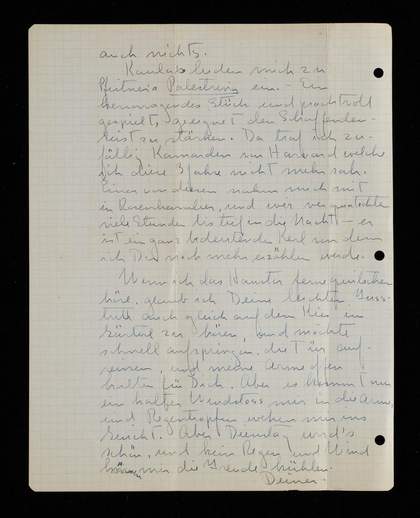 auch nichts.
Kaulas luden mich zu
Pfitzners Palestrina ein. – Ein
hervorragendes Stück und prachtvoll
gespielt, geeignet den Schaffenden-
geist zu stärken. Da traf ich zu-
fällig Kameraden von Harvard welche
ich diese 3 Jahre nicht mehr sah.
Einer von diesen nahm mich mit
in Rosenkavalier, und wir
viele Stunden bis tief in die Nacht – er
ist ein ganz Kerl von dem
ich Dir noch mehr erzählen werde.
Wenn ich das Haustor ferne
höre, glaub ich Deine leichten Fuss-
tritte auch gleich auf dem Kies im
Gärterl zu hören, und möchte
schnell aufspringen, die Tür auf-
reissen, und meine Arme offen
halten für Dich. Aber es kommt nur
ein kalter Windstoss mir in die Arme,
und Regentropfen wehen mir ins
Gesicht. Aber Dienstag wird's
schön, und kein Regen und Wind
mir die Freude kühlen.
Deiner.